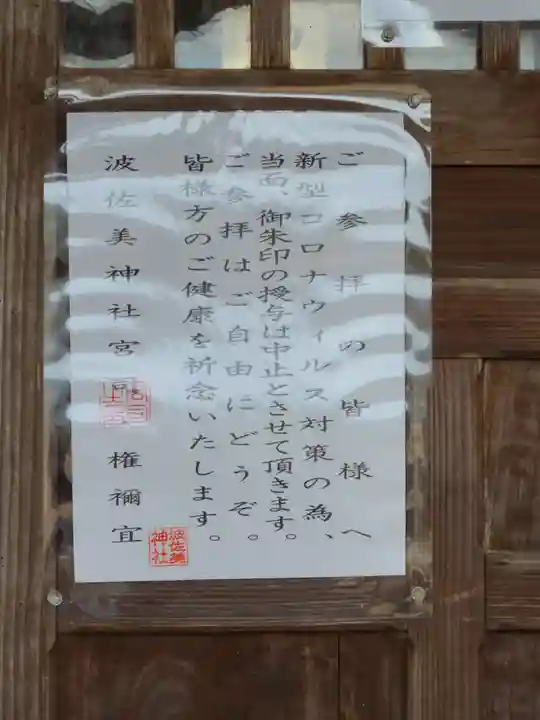 ご参拝の皆様へ
新型コロナウィルス対策の為、
当面、御朱印の授与は中止とさせて頂きます。
ご参拝はご自由にどうぞ。
皆様方のご健康を祈念いたします。
波佐美神社宮司 権禰宜
波佐美
神社